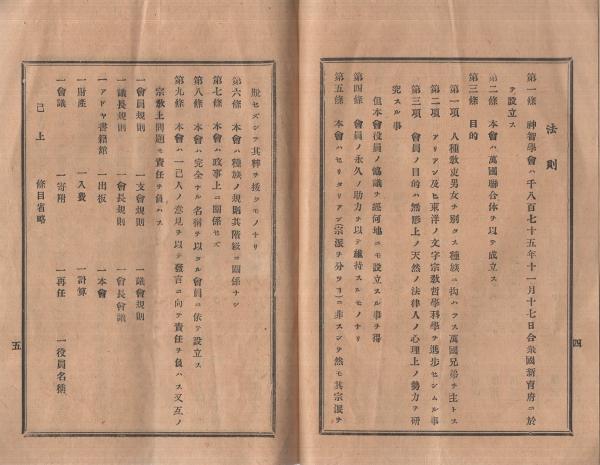 法則
第一條 神智學會ハ千八百七十五年十一月十七日合衆國新育府ニ於
テ設立ス
第二條 本會ハ萬國聯合体ヲ以テ成立ス
第三條 目的
第一項 人種敎克男女ヲ別タス種族ニ拘ハラス萬國兄弟ヲ主トス
第二項 アリアン及ヒ東洋ノ文字宗敎哲學科學ヲ進步セシムル事
第三項 會員ノ目的ハ無形上ノ天然ノ法律人ノ心理上ノ勢力ヲ研
究スル事
但本會役員ノ協議ヲ經何地ニモ設立スル事ヲ得
第四條 會員ノ永久ノ助力ヲ以テ維持スルモノナリ
第五條 本會ハセクタリアン宗派ヲ分ツヿニ非スシテ然モ其宗派ヲ
四
脫セズシテ其粹ヲ拔クモノナリ
第六條 本會ハ種族ノ規則其階級ニ關係ナシ
第七條 本會ハ政事上ニ關係セズ
第八條 本會ハ完全ナル名稱ヲ以タル會員ニ依テ設立ス
第九條 本會ハ一己人ノ意見ヲ以テ發言ニ向テ責任ヲ負ハス又互ノ
宗敎上ノ問題モ責任ヲ負ハス
一會員規則 一支會規則 一議會規則
一議長規則 一會長規則 一會長會議
一アドヤ書籍館 一出板 一本會
一財產 一入費 一計算
一會議 一寄附 一再任 一役員名稱
已上 條目省略
五